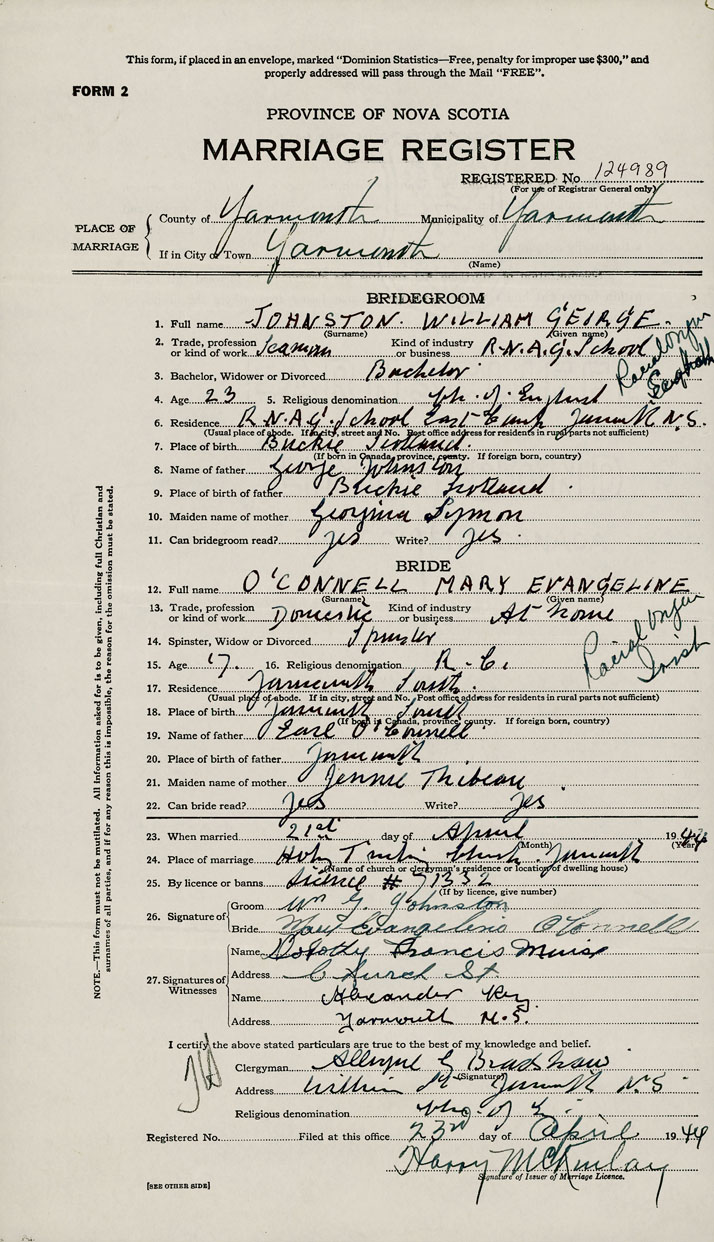 This form, if placed in an envelope, marked "Dominion Statistics—Free, penalty for improper use $300," and
properly addressed will pass through the Mail "FREE".
FORM 2
PROVINCE OF NOVA SCOTIA
MARRIAGE REGISTER
REGISTERED No. 124989
(For use of Registrar General only)
PLACE OF MARRIAGE
County of Yarmouth Municipality of Yarmouth
If in City or Town Yarmouth
(Name)
BRIDEGROOM
1. Full name JOHNSTON. WILLIAM GEIRGE.
(Surname) (Given name)
2. Trade, profession or kind of work Seaman Kind of industry or business R.N.A.G. School
Racial Origin
3. Bachelor, Widower or Divorced Bachelor
4. Age 23 5. Religious denomination Ch. of England
6. Residence R.N.A.G. School East Camp Yarmouth N.S.
(Usual place of abode. If in city, street and No. Post office address for residents in rural parts not sufficient)
7. Place of birth Buckie Scotland.
(If born in Canada, province, county. If foreign born, country)
8. Name of father George Johnston
9. Place of birth of father Buckie Scotland
10. Maiden name of mother Georgina Symon
11. Can bridegroom read? yes Write? yes.
BRIDE
12. Full name O'CONNELL MARY EVANGELINE
(Surname) (Given name)
13. Trade, profession or kind of work Domestic Kind of industry or business At home
14. Spinster, Widow or Divorced Spinster
Racial Origin
Irish
15. Age 17. 16. Religious denomination R.C.
17. Residence Yarmouth South.
(Usual place of abode. If in city, street and No. Post office address for residents in rural parts not sufficient)
18. Place of birth Yarmouth South
(If born in Canada, province, county. If foreign born, country)
19. Name of father Earl O'Connell
20. Place of birth of father Yarmouth
21. Maiden name of mother Jennie Thibeau
22. Can bride read? Yes Write? Yes
23. When married 21st day of April 1944
(Month) (Year)
24. Place of marriage Holy Trinity Church. Yarmouth
(Name of church or clergyman's residence or location of dwelling house)
25. By licence or banns License # 71332
(If by licence, give number)
26. Signature of
Groom Wm G. Johnston
Bride Mary Evangeline O'Connell
27. Signatures of Witnesses
Name Dorothy Francis Muise
Address Church St
Name Alexander Key
Address Yarmouth N.S.
I certify the above stated particulars are true to the best of my knowledge and belief.
Clergyman G Bradshaw
(Signature)
Address William St Yarmouth N.S.
Religious denomination Ch. of E.
Registered No. Filed at this office 23rd day of April 1944
Harry McKinlay
Signature of Issuer of Marriage Licence.
[SEE OTHER SIDE]
NOTE.—This form must not be mutilated. All information asked for is to be given, including full Christian and
surnames of all parties, and if for any reason this is impossible, the reason for the omission must be stated.